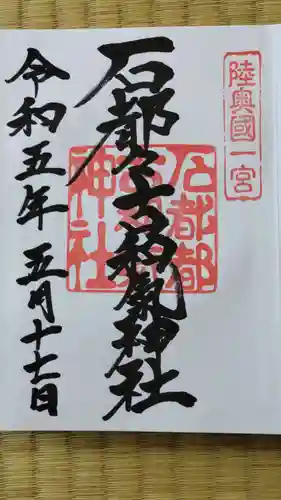 陸奥國一宮
石都々古和氣神社
石都都古和氣神社
令和五年五月十七日